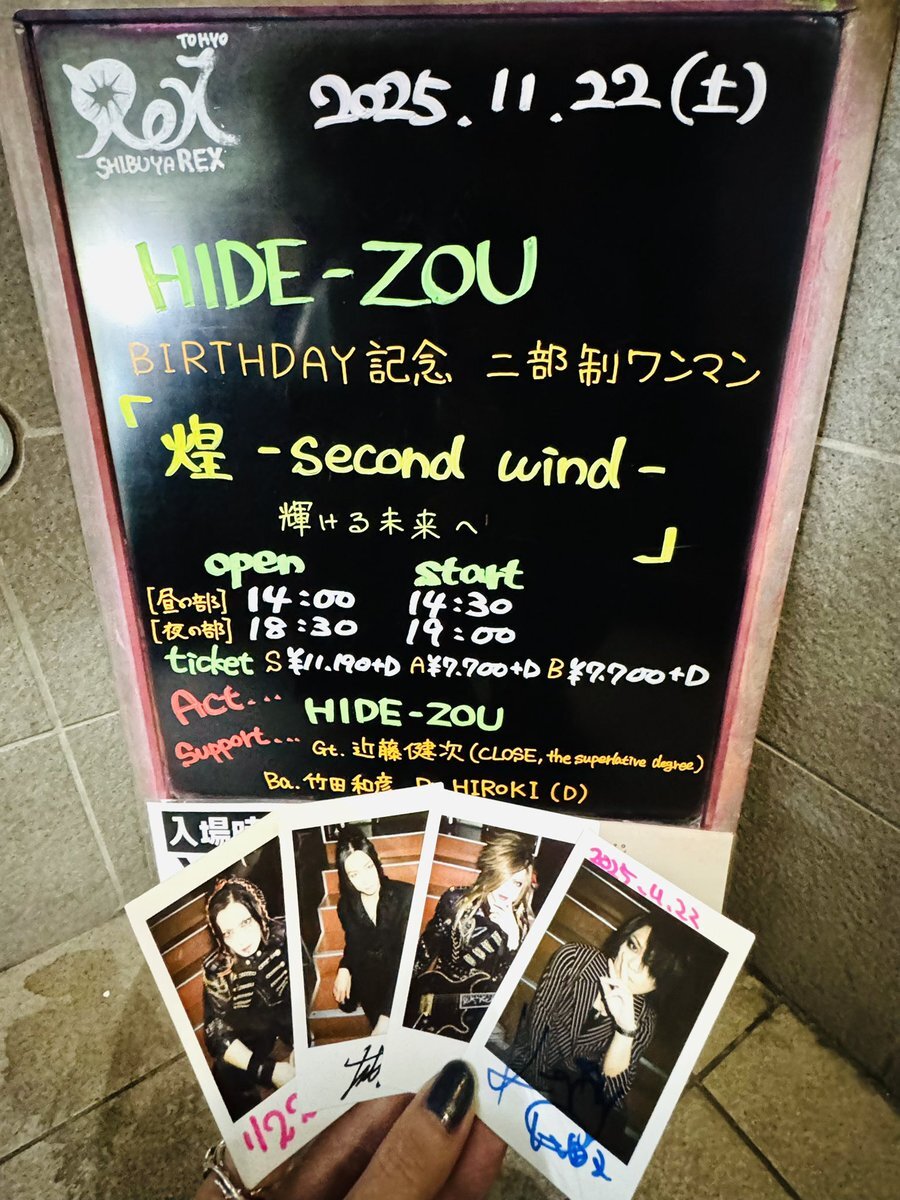 TOKYO
REX
SHIBUYA REX
2025.11.22(土)
HIDE-ZOU
BIRTHDAY記念 二部制ワンマン
「煌 -second wind-
輝ける未来へ」
open start
[昼の部] 14:00 14:30
[夜の部] 18:30 19:00
ticket S ¥11.190+D A ¥7.700+D B ¥7.700+D
Act... HIDE-ZOU
Support... Gt. 近藤健次(CLOSE, the superlative degree)
Ba. 竹田和彦 HIROKI (D)
入場
2025.11.22